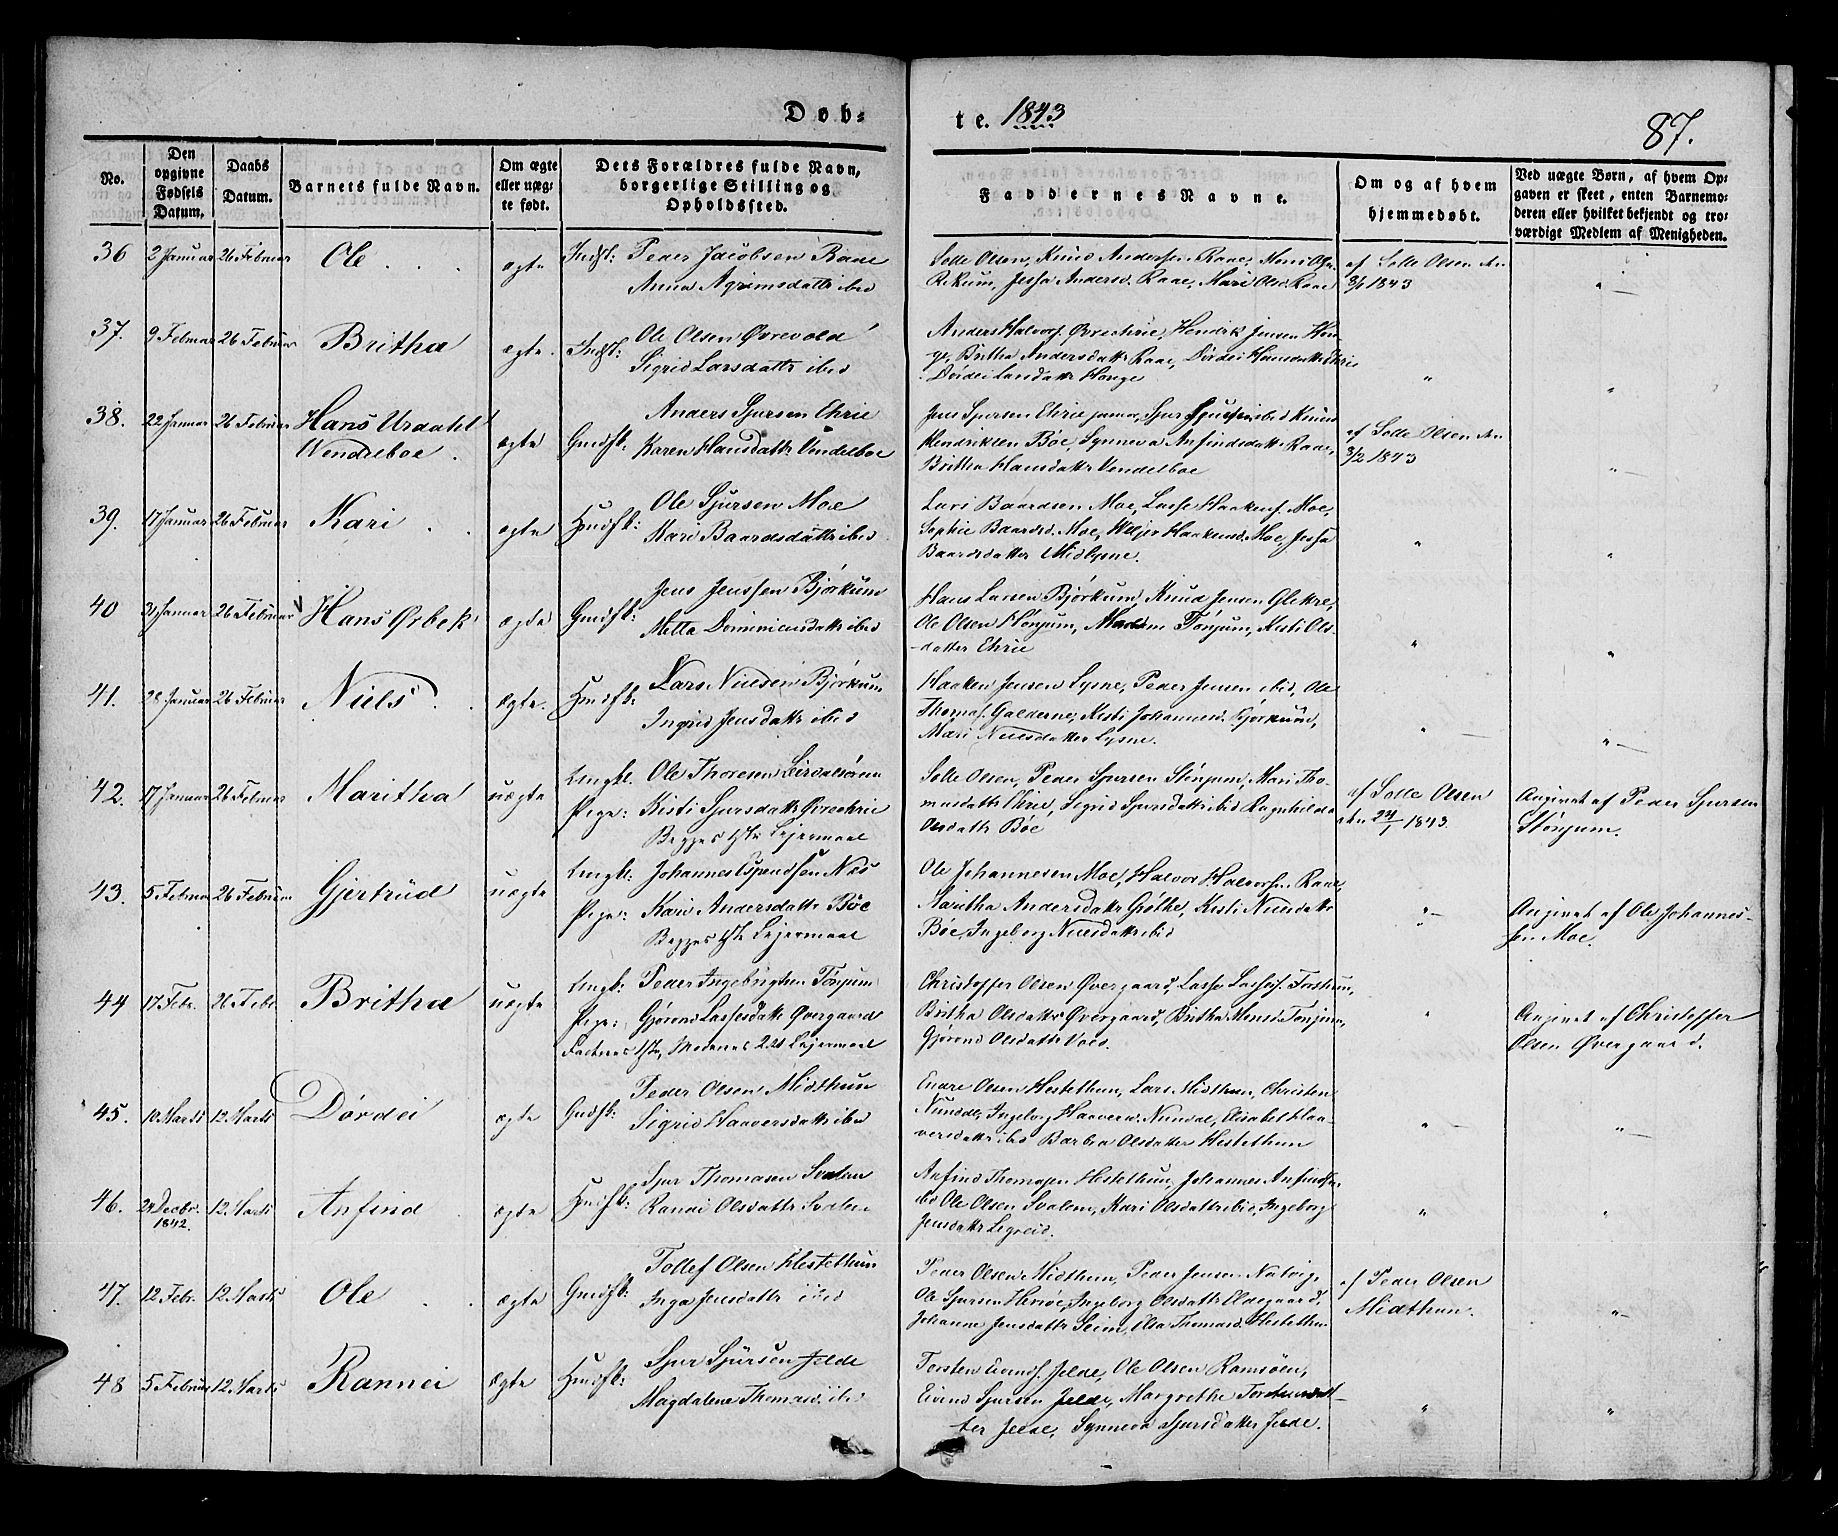 Døb-
te. 1843
87.
No.
Den opgivne Fødsels Datum.
Daabs Datum.
Barnets fulde Navn.
Om ægte eller uæg- te født.
Dets Forældres fulde Navn, borgerlige Stilling og Opholdssted.
Faddernes Navne.
Om og af hvem hjemmedøbt.
Ved uægte Børn, af hvem Op- gaven er skeet, enten Barnemo- deren eller hvilket bekjendt og tro- værdigt Medlem af Menigheden.
36 2 Januar 26 Februar Ole ægte Indst: Peder Jacobsen Raae
Anna Agrimsdattr ibid
Solle Olsen, Knud Andersen Raae, Mons Olsn
Rikum, Jessa Andersd. Raae, Mari Olsd. Raae
af Solle Olsen den
3/1 1843
37. 9 Februar 26 Februar Britha ægte Indst: Ole Olsen Øvrevold
Sigrid Larsdattr ibid
Anders Halvors. Øvreehrie, Hendrik Jensen Hou-
ge, Britha Andersdattr Raae, Dørdei Hansdattr Ehrie
Dørdei Larsdattr Houge
38. 22 Januar 26 Februar Hans Urdahl
Wendelboe ægte Gmdsk: Anders Sjursen Ehrie
Karen Hansdattr Vendelboe
Jens Sjursen Ehrie junior, Sjur Sjursen ibid Knud
Hendriksen Bøe, Synneva Anfindsdattr Raae,
Britha Hansdattr Vendelboe
af Solle Olsen den
3/2 1843
39. 17 Januar 26 Februar Kari ægte Huusfk: Ole Sjursen Moe
Mari Baardsdattr ibid
Lars Baardsen Moe, Lasse Haakens. Moe,
Sophie Baardsd. Moe, Haakensd. Moe, Jessa
Baardsdatter Midlysne.
40 31 Januar 26 Februar Hans Ørbek ægte Gmdsk: Jens Jenssen Bjørkum
Metta Dominicusdattr ibid
Hans Larsen Bjørkum, Knud Jensen Glekre,
Ole Olsen Hønjum, Madam Tønjum, Kisti Ols-
datter Ehrie
41. 28 Januar 26 Februar Niels ægte. Huusfk: Lars Nielsen Bjørkum
Ingrid Jensdattr ibid
Haaken Jensen Lysne, Peder Jensen ibid, Ole
Thomas. Galderne, Kisti Johannesd. Bjørkum,
Mari Nielsdatter Lysne.
42. 17 Januar 26 Februar Maritha uægte Ungkl. Ole Thoresen Leirdalsøren
Pige: Kisti Sjursdattr Øvreehrie
Begges 1ste Lejermaal
Solle Olsen, Peder Sjursen Stønjum, Mari Tho-
masdattr Ehrie, Sigrid Sjursdattr ibid Ragnhilda
Olsdattr Bøe
af Solle Olsen
den 24/1 1843.
Angivet af Peder Sjursen
Stønjum.
43. 5 Februar 26 Februar Gjertrud uægte Ungkl: Johannes Espendsen Næs
Pige: Kari Andersdattr Bøe
Begges 1ste Lejermaal
Ole Johannesen Moe, Halvor Halvorsen Raae,
Maritha Andersdattr Grøthe, Kisti Nielsdattr
Bøe, Ingeborg Nielsdattr ibid
Angivet af Ole Johannes-
sen Moe.
44 17 Febr. 26 Febr. Britha uægte Ungkl: Peder Ingebrigtsen Tønjum
Pige: Gjørond Lassesdattr Øvergaard
Faders 1ste, Moderens 2det Lejermaal
Christoffer Olsen Øvergaard, Lasse Lasses. Tørstun,
Britha Olsdattr Øvergaard, Britha Monsd Tønjum,
Gjørond Olsdattr Voss.
Angivet af Christoffer
Olsen Øvergaard.
45. 10 Marts 12 Marts Dørdei ægte Gmdsk: Peder Olsen Midthun
Sigrid Haaversdattr ibid
Endre Olsen Hestethun, Lars Midthun, Christen
Nundal, Ingeborg Haaversd. Nundal, Elisabet Haa-
versdattr ibid Barbra Olsdatter Hestethun
46. 24 Decbr. 1842. 12 Marts Anfind ægte Huusfk: Sjur Thomasen Svalem
Randi Olsdattr Svalem
Anfind Thomasen Hestethun, Johannes Anfindsen
ibid Ole Olsen Svalem, Kari Olsdattr ibid, Ingeborg
Jensdattr Legreid.
47. 12 Febr. 12 Marts Ole ægte Gmdsk: Tollef Olsen Hestethun
Inga Jensdattr ibid
Peder Olsen Midthun, Peder Jensen Natvig,
Ole Sjursen Herisøe, Ingeborg Olsdattr Eldegaard,
Johanne Jensdattr Seim, Elsa Thomasd. Hestethun
af Peder Olsen
Midthun.
48 5 Februar 12 Marts Rannei ægte Huusfk: Sjur Sjursen Jelde
Magdalene Thomasd. ibid
Torsten Eivinds. Jelde, Ole Olsen Ramsøen,
Eivind Sjursen Jelde, Margrethe Torstensdat-
ter Jelde, Synneva Sjursdatter Jelde.